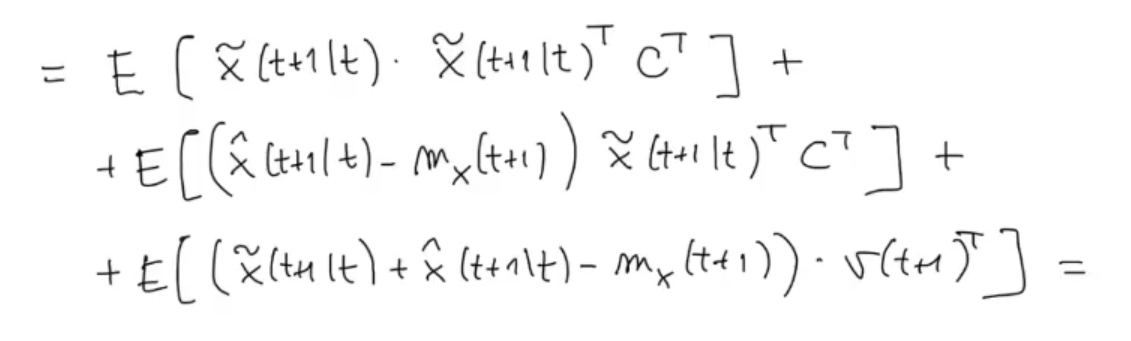 = E [ x̃(t+1|t) · x̃(t+1|t)ᵀ Cᵀ ] +
+ E[(x̂(t+1|t) - mₓ(t+1)) x̃(t+1|t)ᵀ Cᵀ ] +
+ E[ (x̃(t+1|t) + x̂(t+1|t) - mₓ(t+1)) · v(t+1)ᵀ ] =